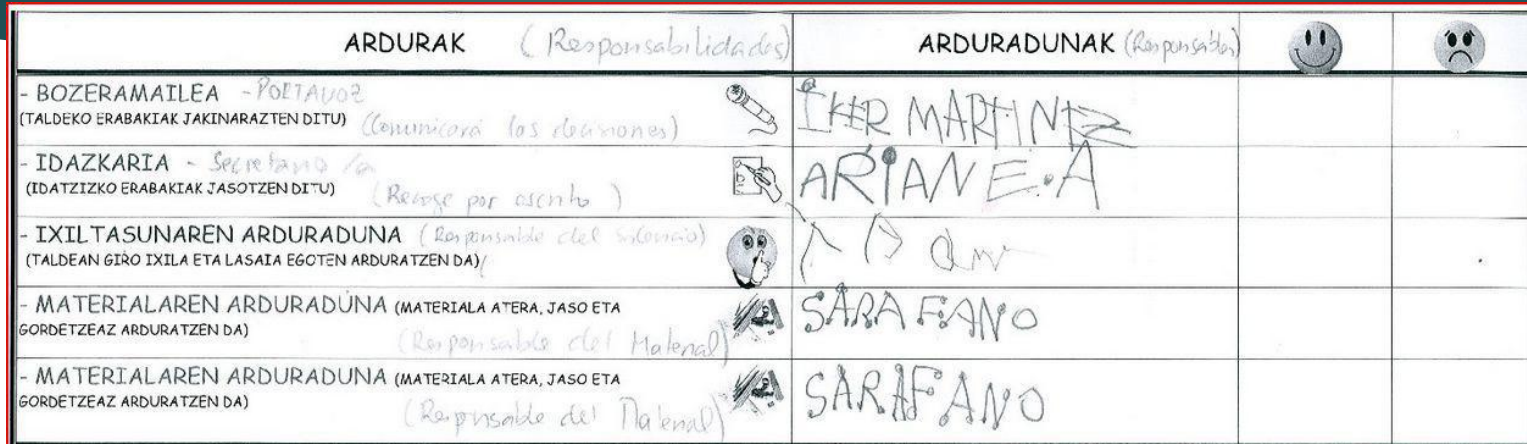 ARDURAK (Responsabilidades) ARDURADUNAK (Responsables)
- BOZERAMAILEA - PORTAVOZ
(TALDEKO ERABAKIAK JAKINARAZTEN DITU) (Comunicará las decisiones)
IKER MARTINEZ
- IDAZKARIA - Secretario/a
(IDATZIZKO ERABAKIAK JASOTZEN DITU) (Recoge por escrito)
ARIANE.A
- IXILTASUNAREN ARDURADUNA (Responsable del silencio)
(TALDEAN GIRO IXILA ETA LASAIA EGOTEN ARDURATZEN DA)
- MATERIALAREN ARDURADUNA (MATERIALA ATERA, JASO ETA
GORDETZEAZ ARDURATZEN DA) (Responsable del Material)
SARA FANO
- MATERIALAREN ARDURADUNA (MATERIALA ATERA, JASO ETA
GORDETZEAZ ARDURATZEN DA) (Responsable del Material)
SARAFANO